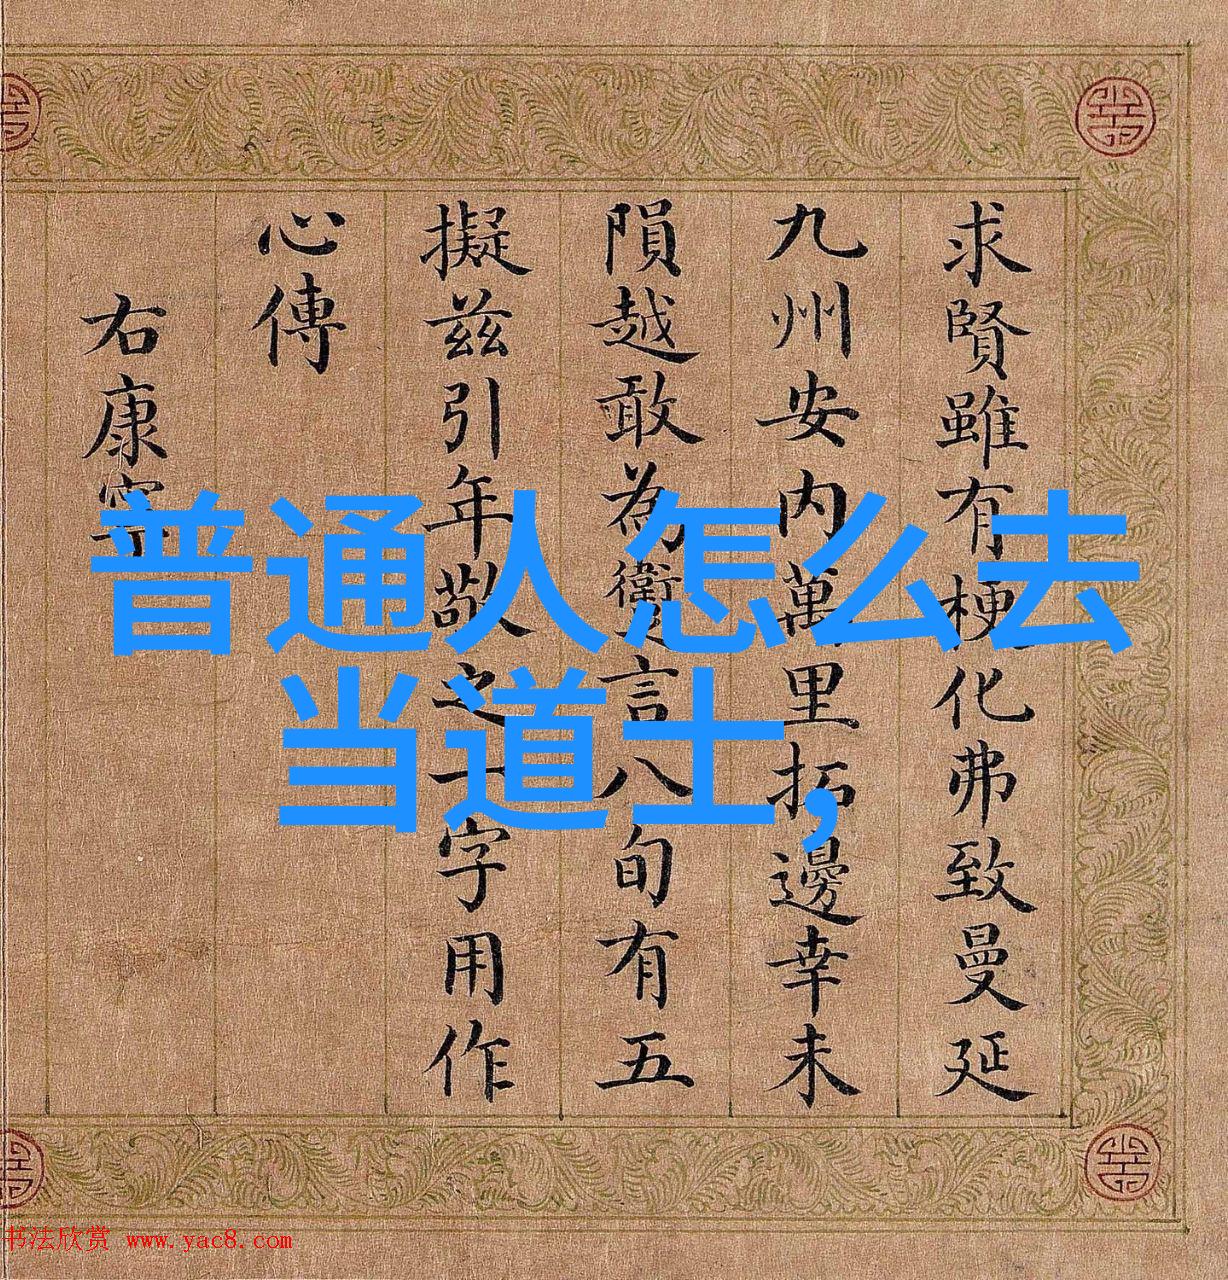 求賢雖有梗化弗致曼延
九州安内萬里拓邊幸未
隕越敢為衛言八旬有五
擬兹引年敬之一字用作
心傳
右康寧
普通人怎么去
当道士,
书法欣赏 www.yac8.com